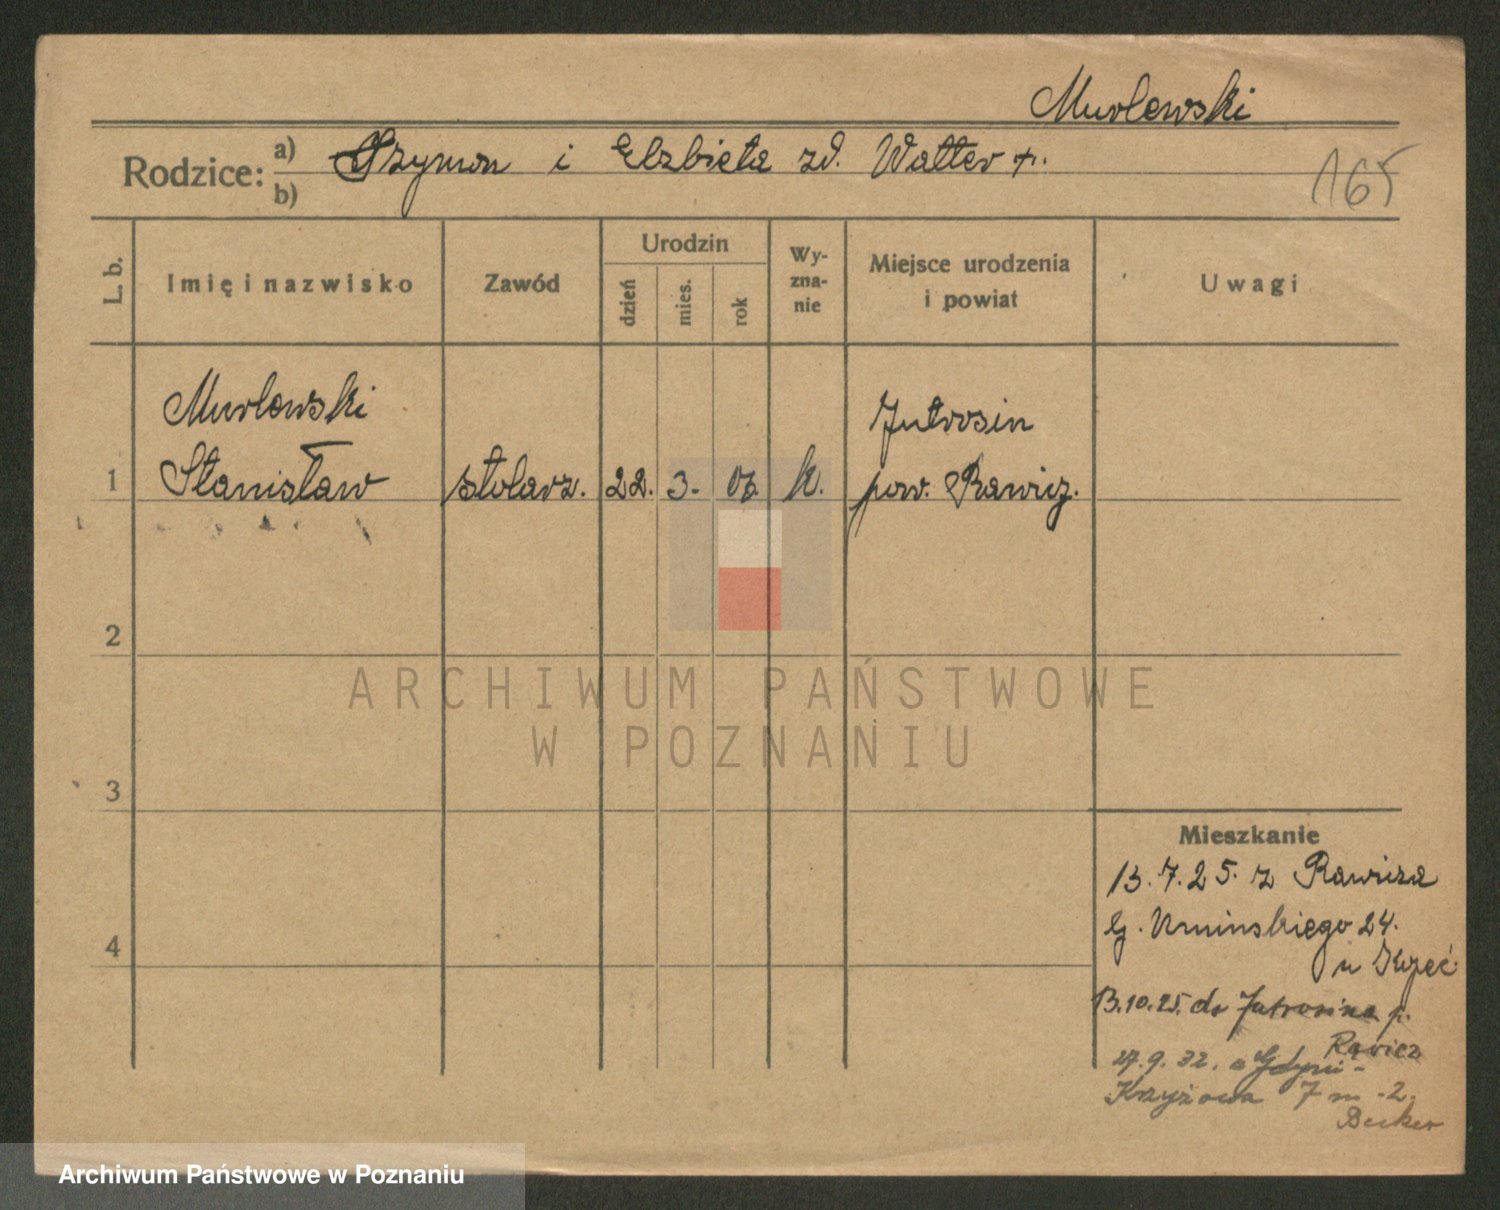 Murlewski
Rodzice: a) Szymon i Elzbieta zd. Walter +.
b)
165
L. b.
Imię i nazwisko
Zawód
Urodzin
dzień
mies.
rok
Wy-
zna-
nie
Miejsce urodzenia
i powiat
Uwagi
Murlewski
Jutrosin
1 Stanisław stolarz. 22. 3. 07. k. pow. Rawicz.
2
3
4
Mieszkanie
13.7.25. z Rawicza
G. Umińskiego 24.
u
13.10.25. do Jutrosina p.
Rawicz
27.9.32. Gdyni -
Krzyżowa 7 m -2.
Becker
ARCHIWUM PAŃSTWOWE
W POZNANIU
Archiwum Państwowe w Poznaniu